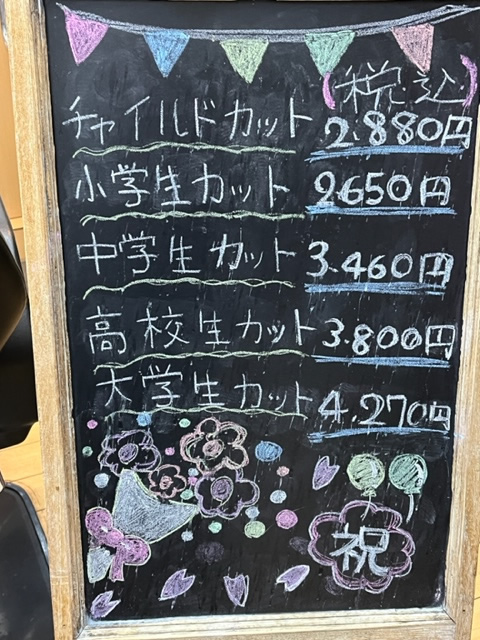 (税込)
チャイルドカット 2.880円
小学生カット 2650円
中学生カット 3.460円
高校生カット 3.800円
大学生カット 4.270円
祝